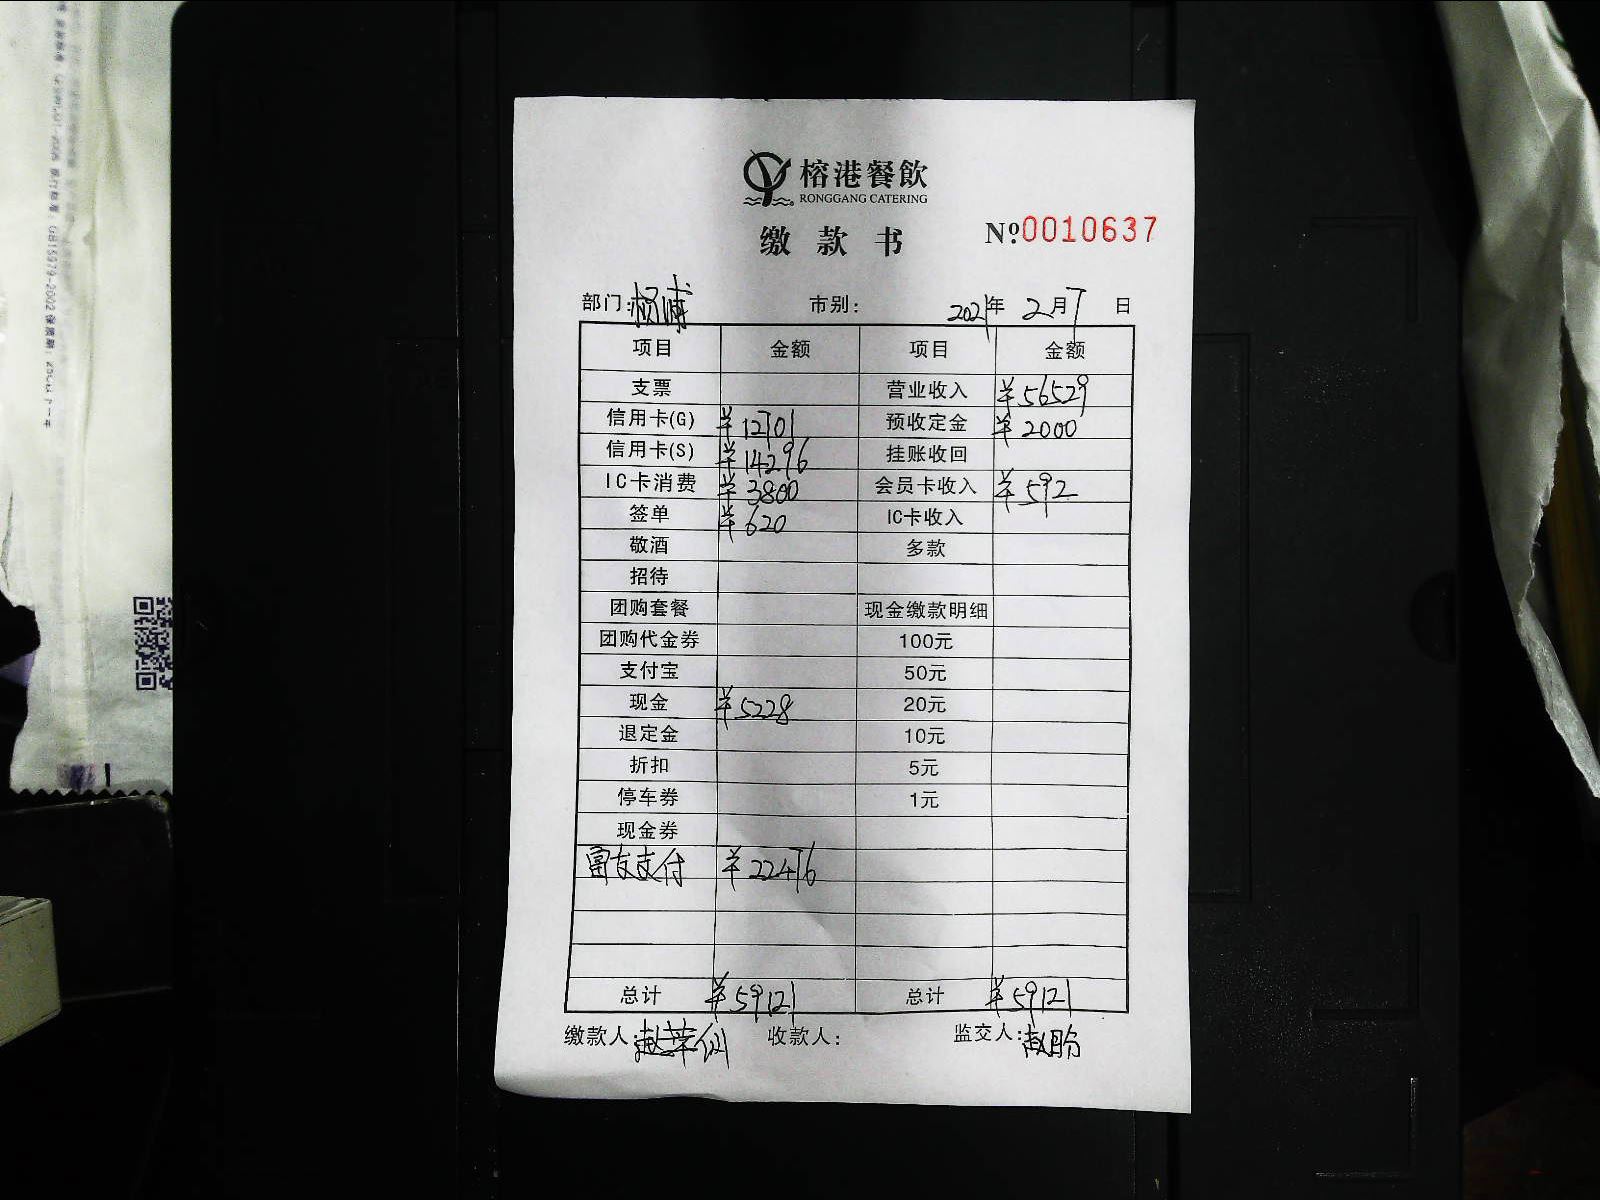 榕港餐飲
RONGGANG CATERING
缴款书
Nº0010637
部门:杨浦 市别: 2021年 2月7日
项目 金额 项目 金额
支票 营业收入 ¥56529
信用卡(G) ¥12701 预收定金 ¥2000
信用卡(S) ¥14296 挂账收回
IC卡消费 ¥3800 会员卡收入 ¥592
签单 ¥620 IC卡收入
敬酒 多款
招待
团购套餐 现金缴款明细
团购代金券 100元
支付宝 50元
现金 ¥5228 20元
退定金 10元
折扣 5元
停车券 1元
现金券
富友支付 ¥22476
总计 ¥59121 总计 ¥59121
缴款人: 收款人: 监交人: